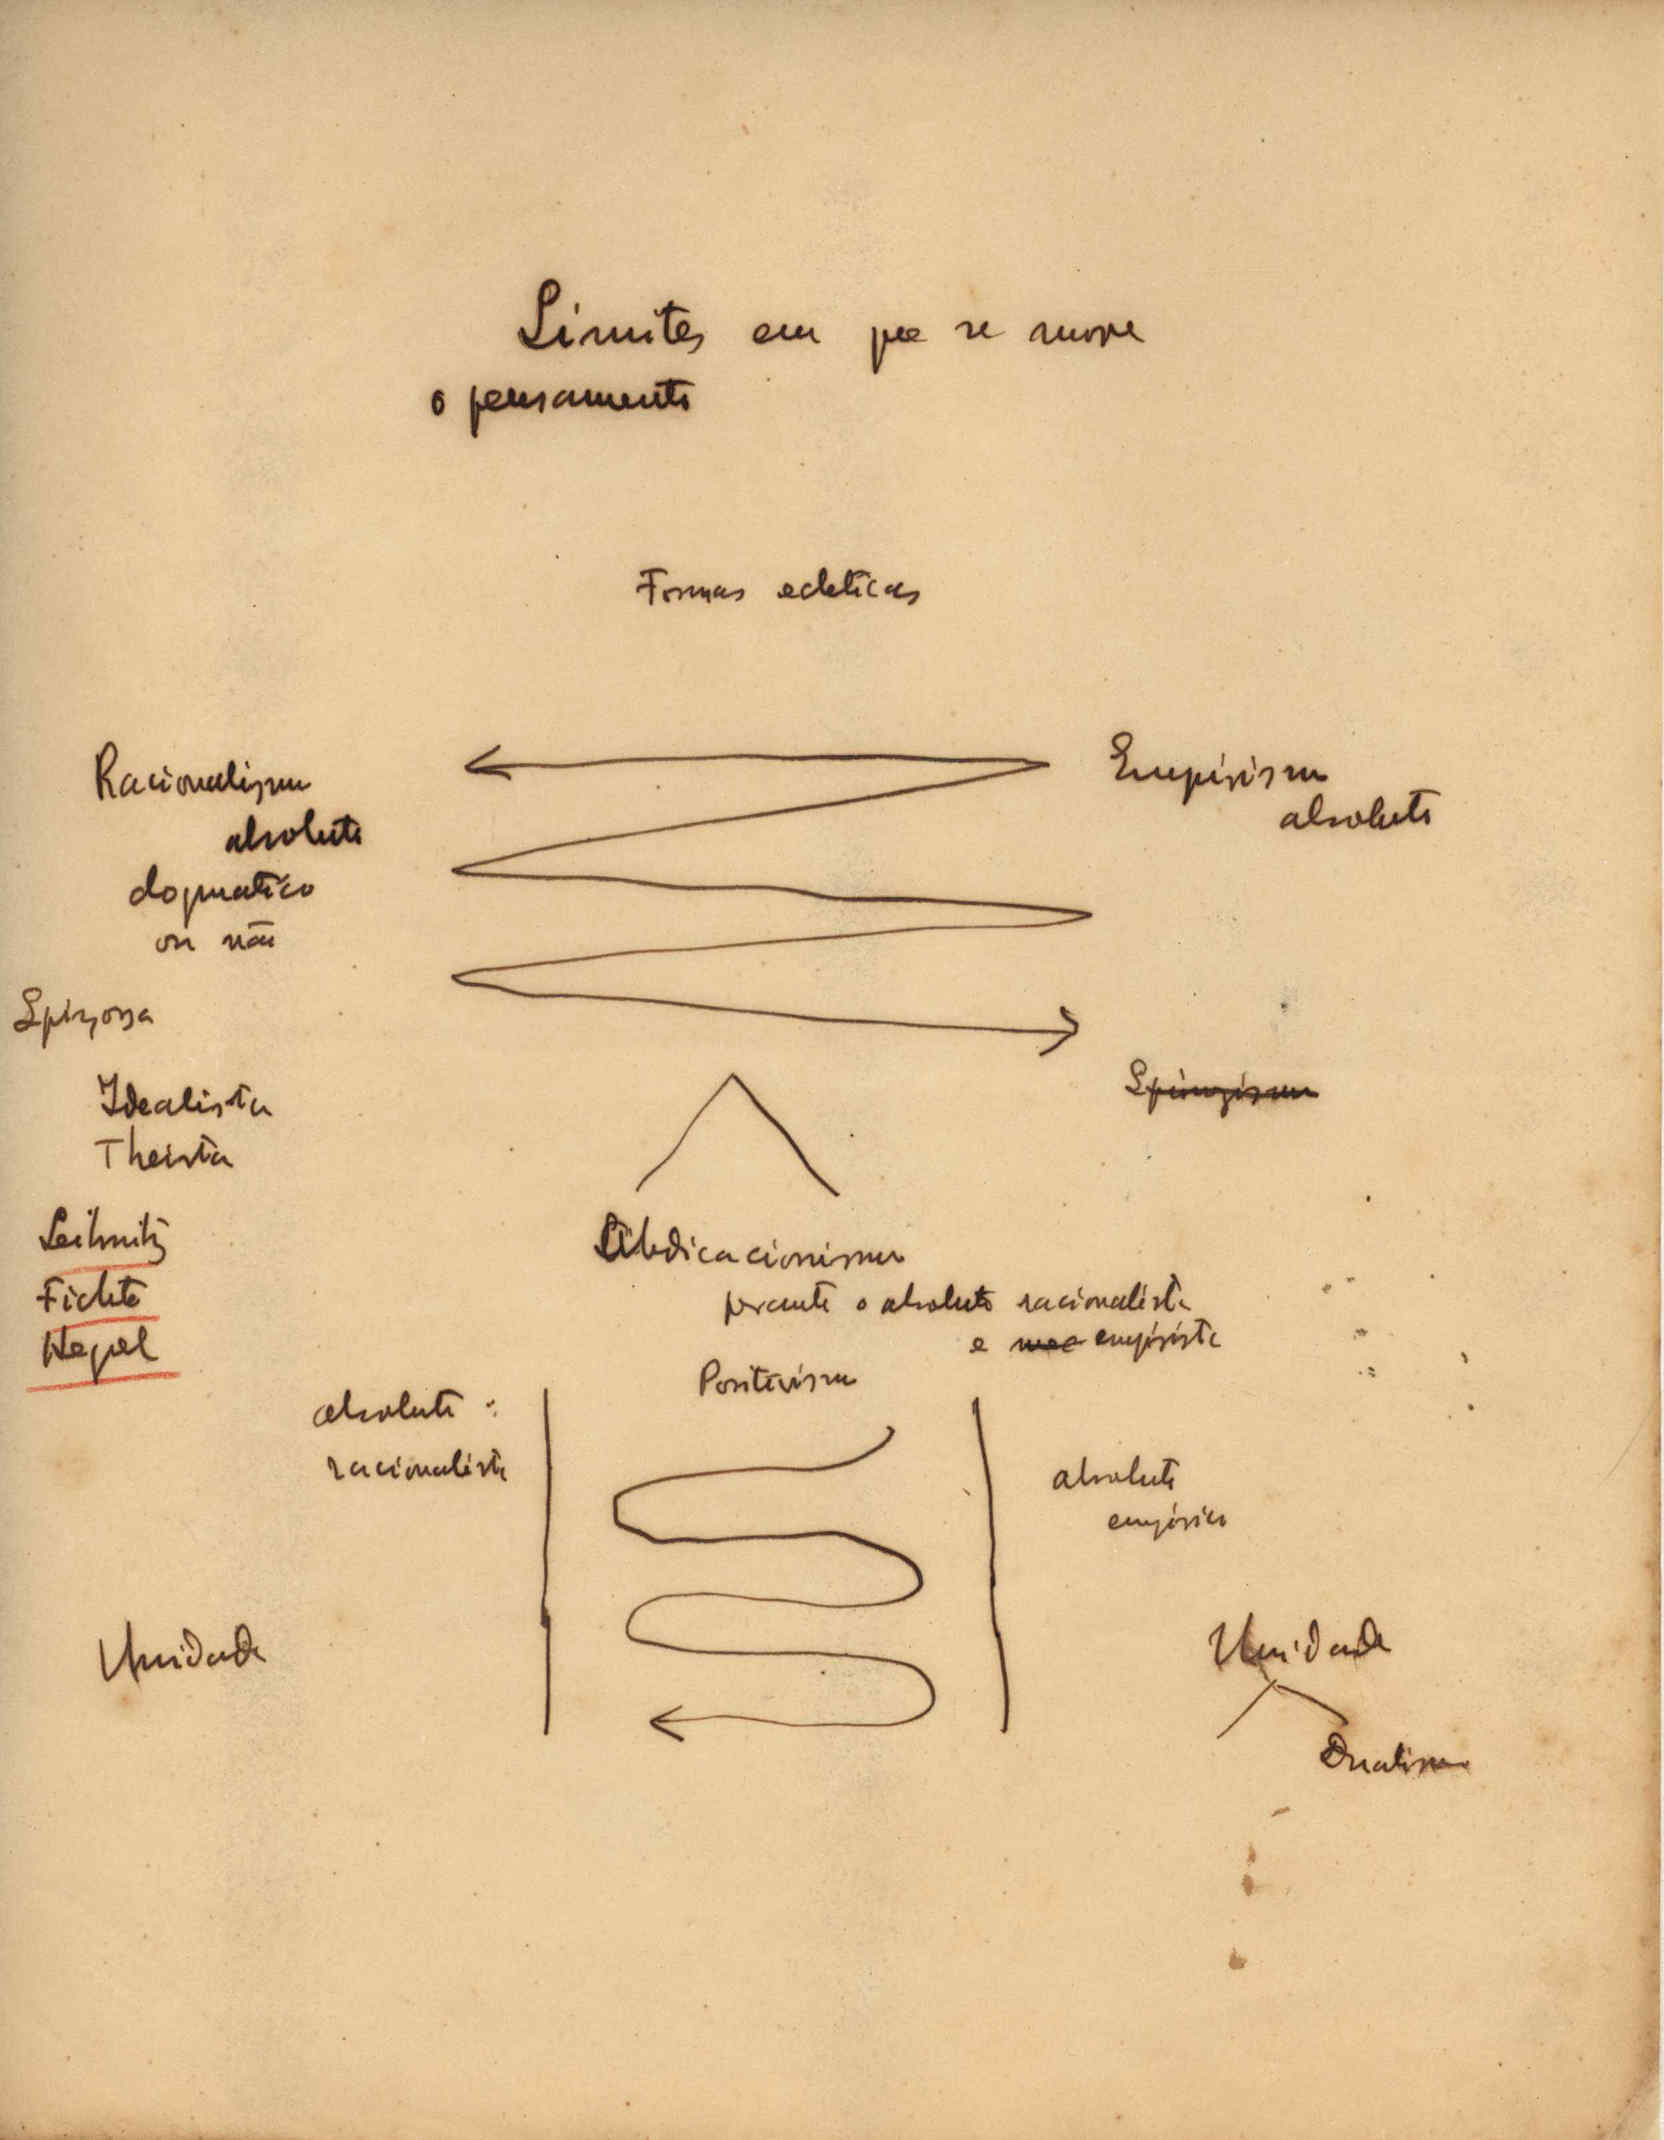 Limites em que se move
o pensamento
Formas ecleticas
Racionalismo
absoluto
dogmatico
ou não
Empirismo
absoluto
Spinosa
Idealista
Theista
Spinozismo
Leibnitz
Fichte
Hegel
Abdicacionismo
perante o absoluto racionalista
e empirista
Positivismo
absoluto
racionalista
absoluto
empirico
Unidade
Unidade
Dualismo